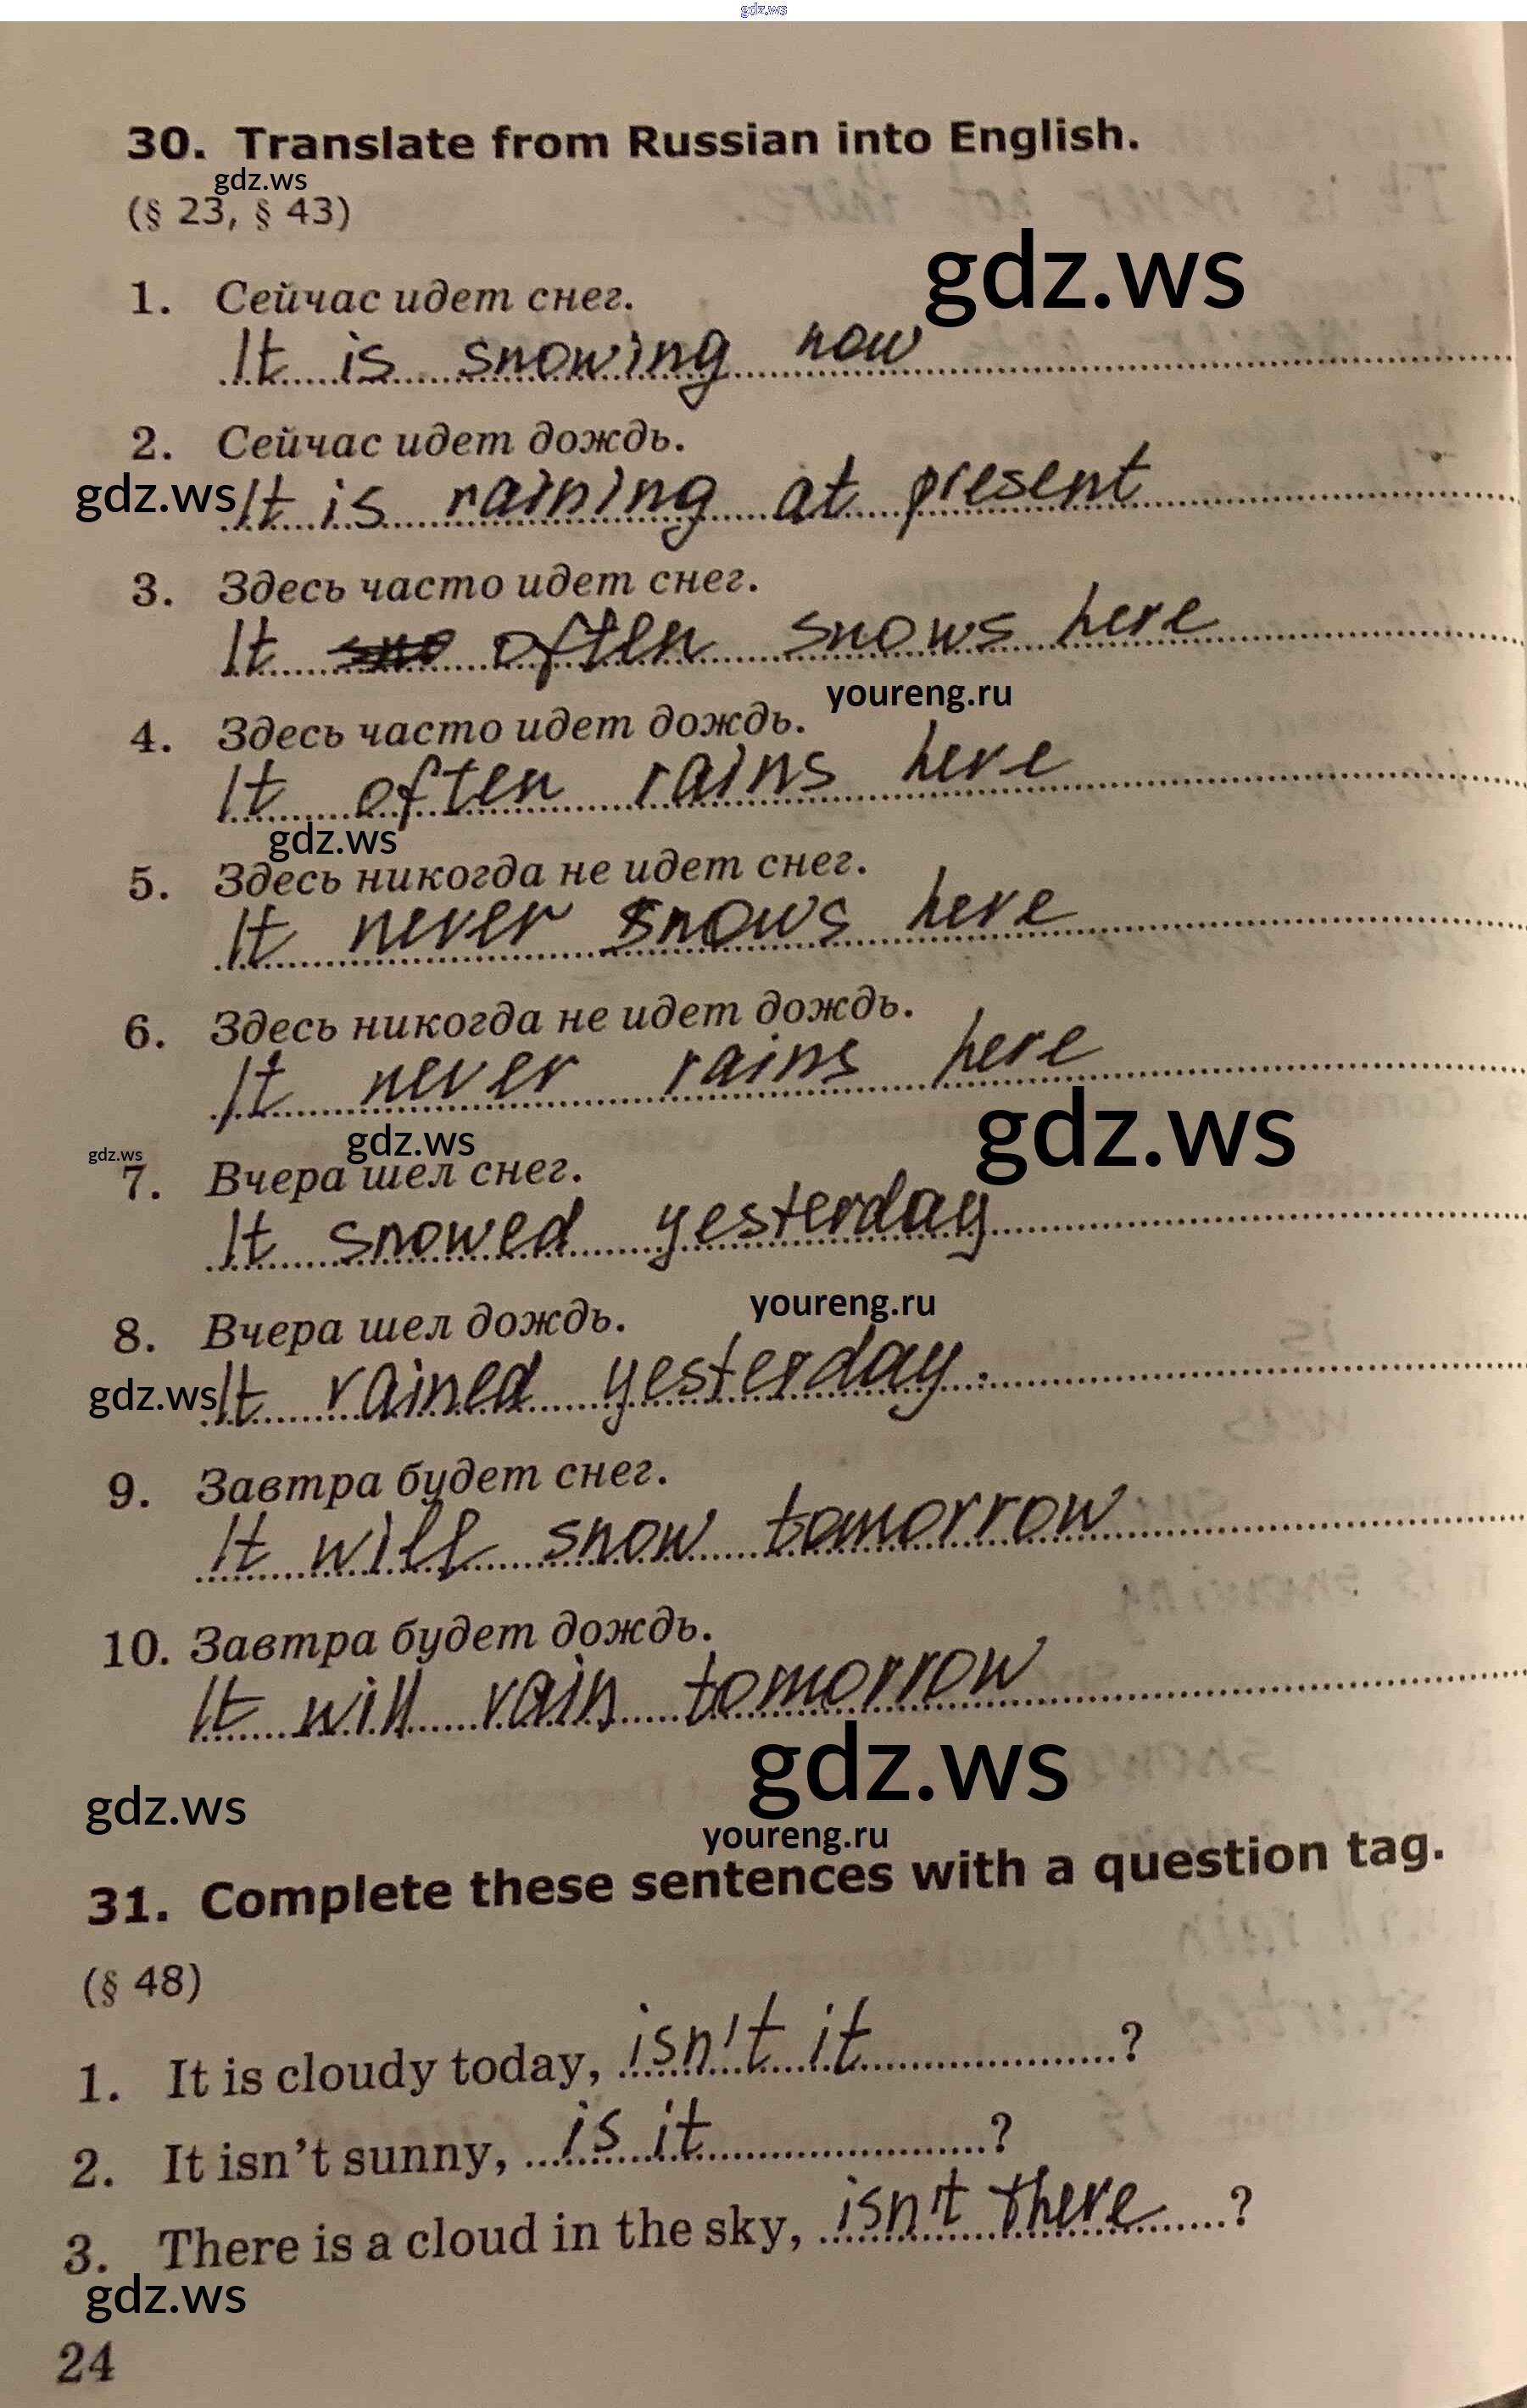 gdz.ws
30. Translate from Russian into English.
gdz.ws
(§ 23, § 43)
gdz.ws
1. Сейчас идет снег.
It is snowing now
2. Сейчас идет дождь.
gdz.ws
It is raining at present
3. Здесь часто идет снег.
It often snows here
youreng.ru
4. Здесь часто идет дождь.
It often rains here
gdz.ws
5. Здесь никогда не идет снег.
It never snows here
6. Здесь никогда не идет дождь.
It never rains here
gdz.ws
gdz.ws
gdz.ws
7. Вчера шел снег.
It snowed yesterday
youreng.ru
8. Вчера шел дождь.
gdz.ws
It rained yesterday.
9. Завтра будет снег.
It will snow tomorrow
10. Завтра будет дождь.
It will rain tomorrow
gdz.ws
gdz.ws
youreng.ru
31. Complete these sentences with a question tag.
(§ 48)
1. It is cloudy today, isn't it ?
2. It isn't sunny, is it ?
3. There is a cloud in the sky, isn't there ?
gdz.ws
24